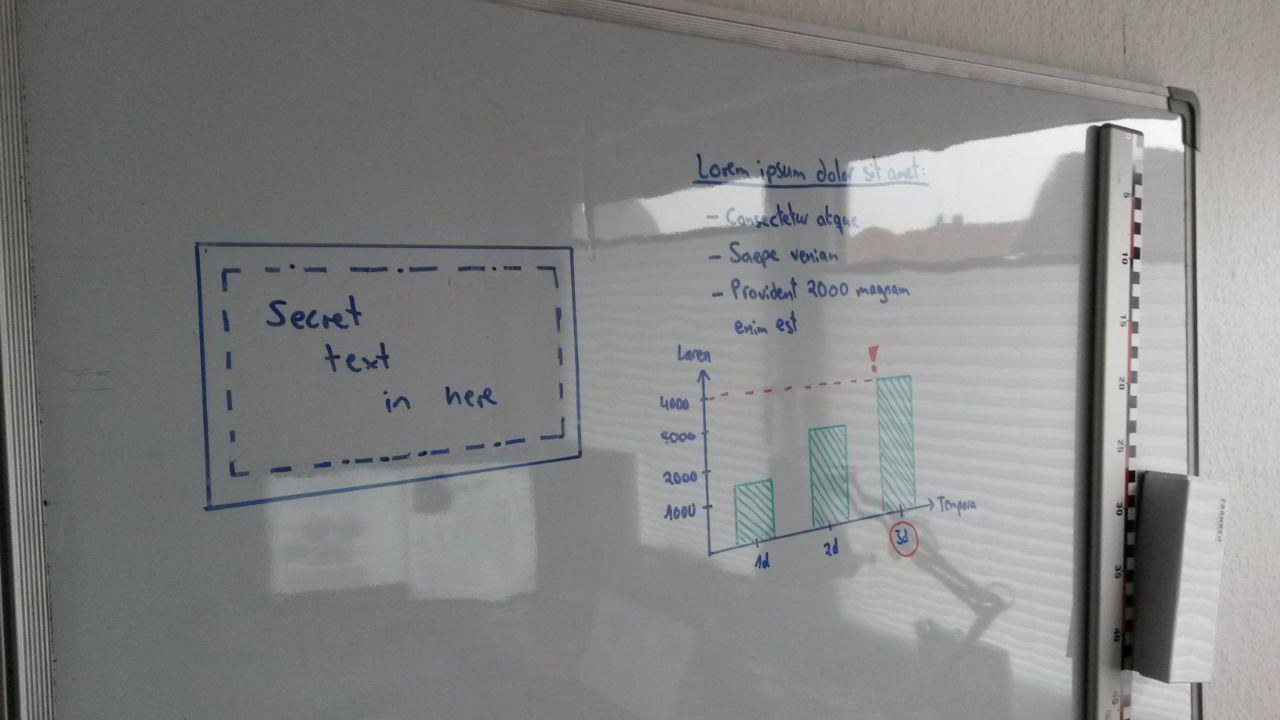 Secret
text
in here
Lorem ipsum dolor sit amet:
- Consectetur atque
- Saepe veniam
- Provident 2000 magnam
enim est
Lorem
!
4000
3000
2000
1000
1d
2d
3d
Tempora
5
10
15
20
25
30
35
40
45
FRANKEN